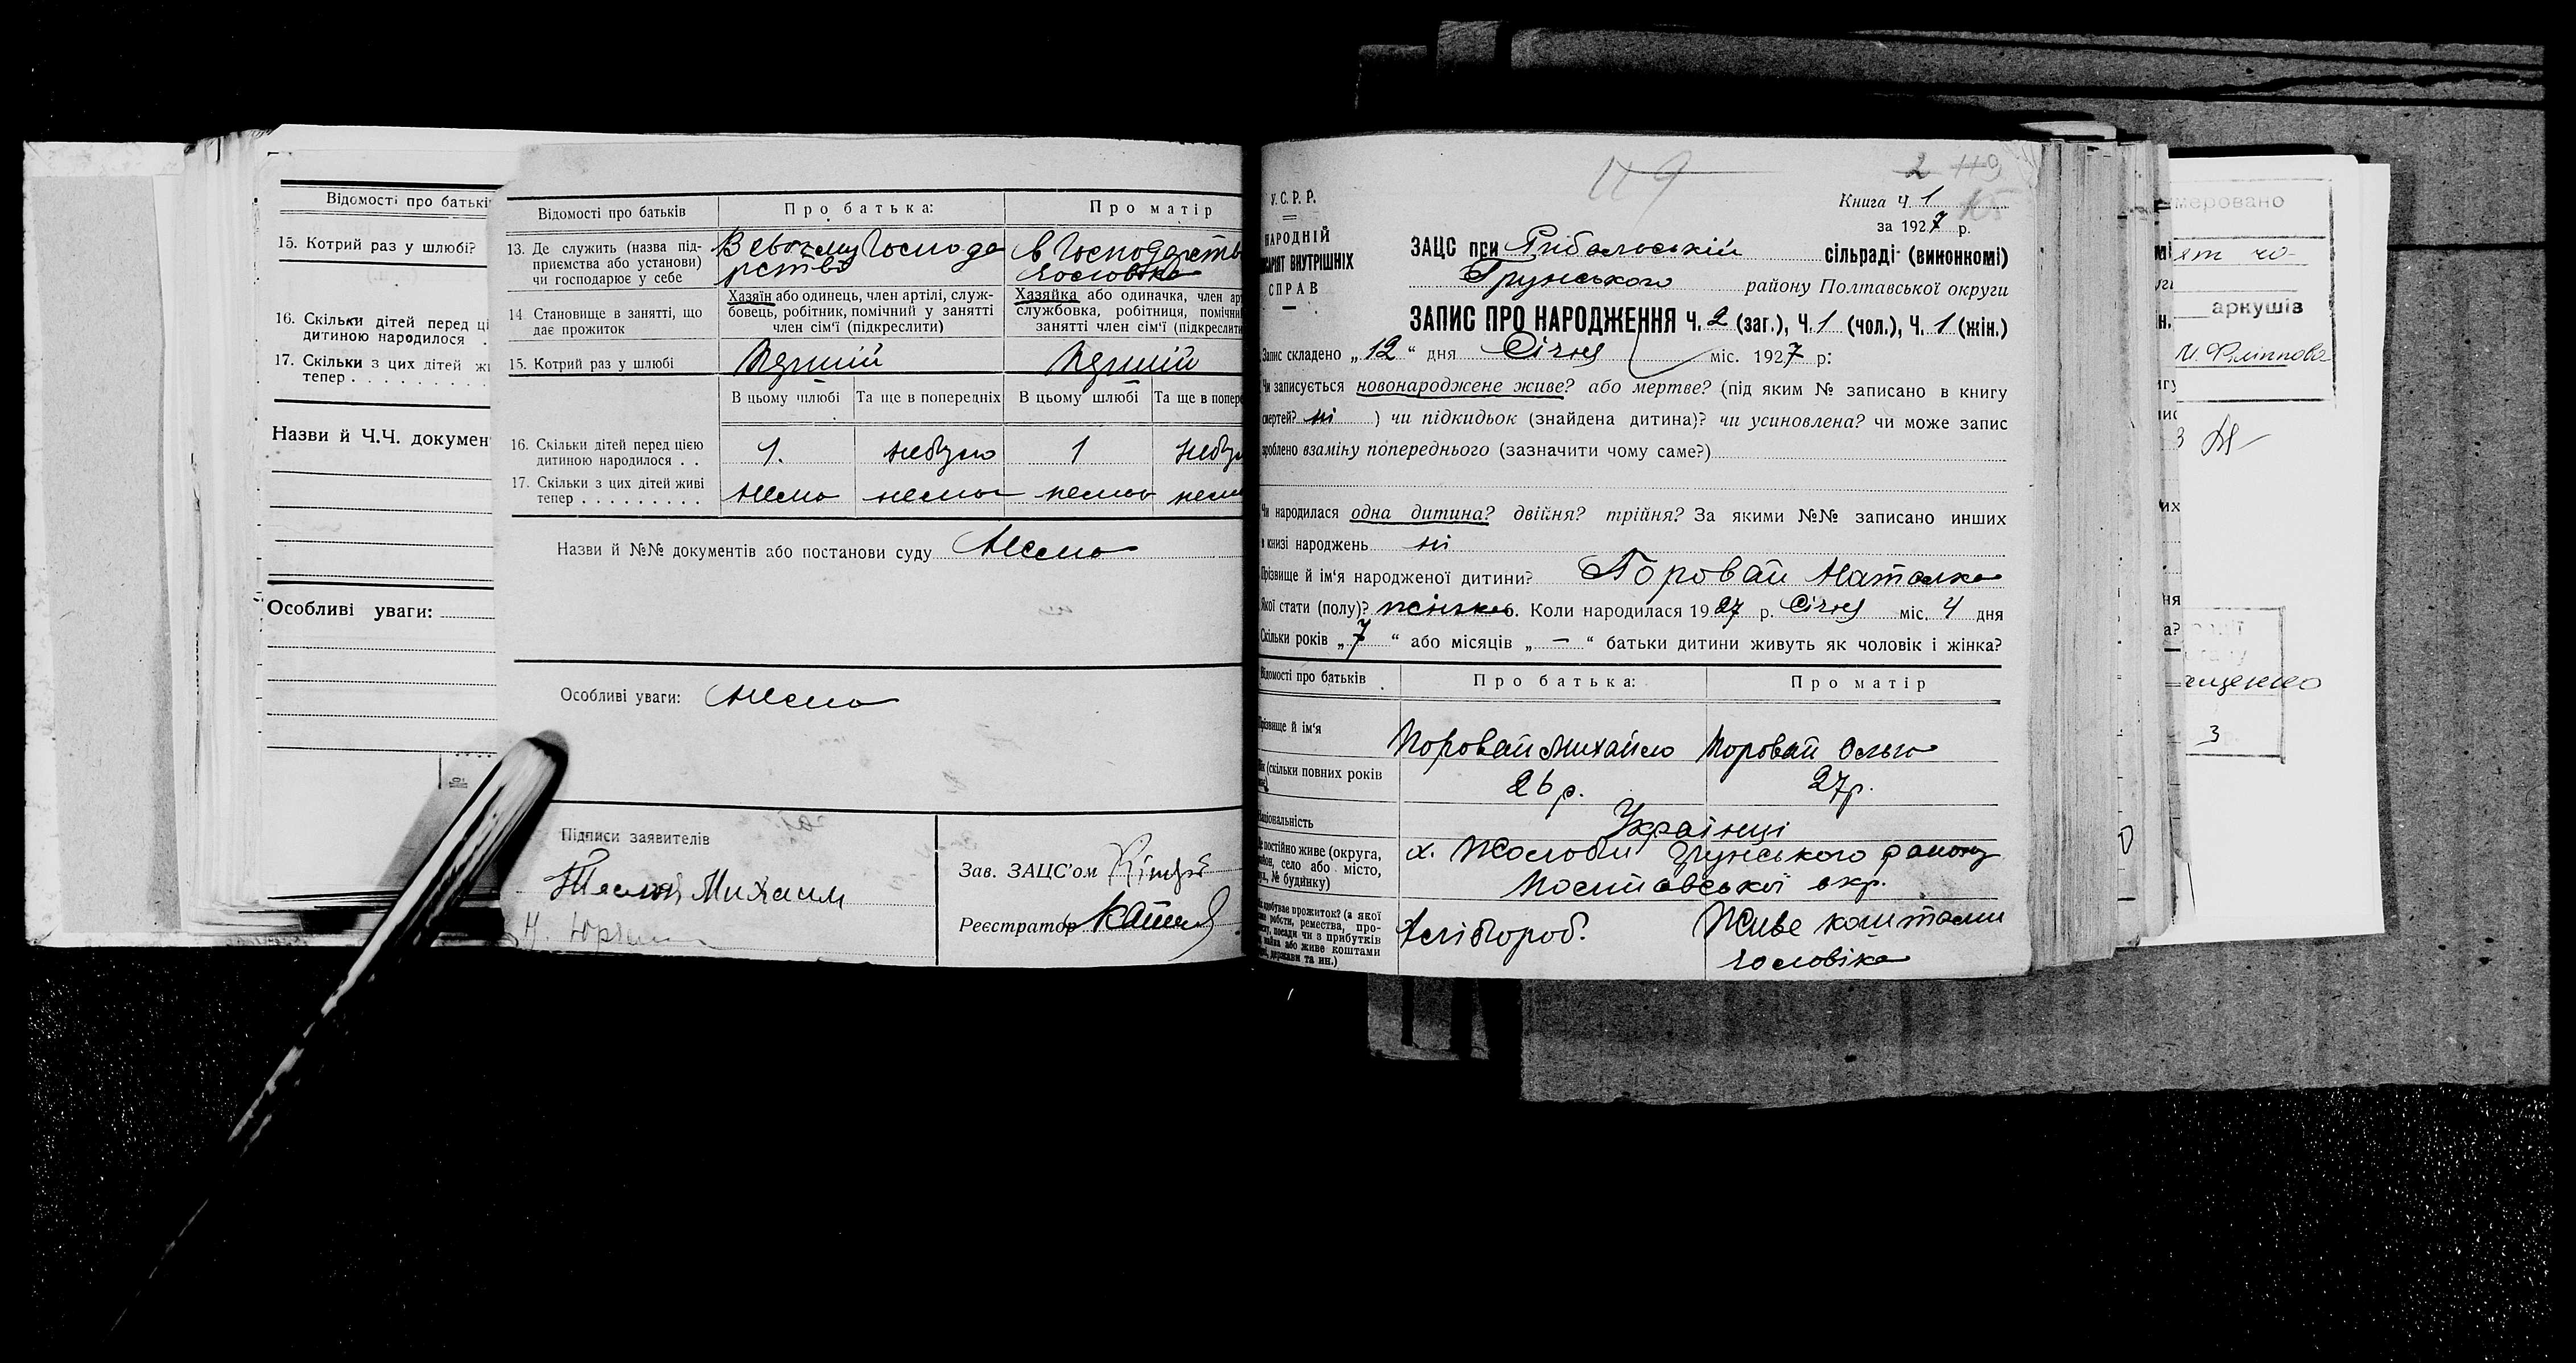 Відомості про батькі
15. Котрий раз у шлюбі?
16. Скільки дітей перед ці
дитиною народилося .
17. Скільки з цих дітей жи
тепер . . . . . . . . . .
Назви й Ч.Ч. докумен
Особливі уваги:
Відомості про батьків
Про батька:
Про матір
13. Де служить (назва під-
приємства або установи)
чи господарює у себе
В своєму Господа
рстві
в Господарстві
чоловіка
14 Становище в занятті, що
дає прожиток
Хазяїн або одинець, член артілі, служ-
бовець, робітник, помічний у занятті
член сім'ї (підкреслити)
Хазяйка або одиначка, член ар
службовка, робітниця, помічни
занятті член сім'ї (підкреслити
15. Котрий раз у шлюбі
Перший
Перший
В цьому шлюбі
Та ще в попередніх
В цьому шлюбі
Та ще в попере
16. Скільки дітей перед цією
дитиною народилося . .
1.
небуло
1
небул
17. Скільки з цих дітей живі
тепер . . . . . . . . .
нема
нема
нема
нема
Назви й №№ документів або постанови суду Нема
Особливі уваги: Нема
Підписи заявителів
Михаил
Зав. ЗАЦС'ом
Реєстратор
119
2 119
У.С.Р.Р.
НАРОДНІЙ
САРІЯТ ВНУТРІШНІХ
СПРАВ
Книга Ч 1
за 1927 р.
ЗАЦС при Рибальській сільраді (виконкомі)
Грунського району Полтавської округи
ЗАПИС ПРО НАРОДЖЕННЯ Ч. 2 (заг.), Ч. 1 (чол.), Ч. 1 (жін.)
Запис складено „12“ дня Січня міс. 1927 р:
Чи записується новонароджене живе? або мертве? (під яким № записано в книгу
смертей? ні ) чи підкидьок (знайдена дитина)? чи усиновлена? чи може запис
зроблено взаміну попереднього (зазначити чому саме?)
Чи народилася одна дитина? двійня? трійня? За якими №№ записано инших
в книзі народжень ні
Прізвище й ім'я народженої дитини? Поровай Наталка
Якої стати (полу)? жіночо. Коли народилася 1927 р. Січня міс. 4 дня
Скільки років „7“ або місяців „—“ батьки дитини живуть як чоловік і жінка?
Відомості про батьків
Про батька:
Про матір
Прізвище й ім'я
Поровай Михайло
Поровай Ольга
Вік (скільки повних років
26 р.
27 р.
Національність
Українці
Де постійно живе (округа,
район, село або місто,
№ будинку)
х. Жолоби Грунського району
Полтавської окр.
здобуває прожиток? (з якої
роботи, ремества, про-
посади чи з прибутків
майна або живе коштами
держави та ин.)
Хлібороб.
Живе коштами
чоловіка
меровано
аркушів
3